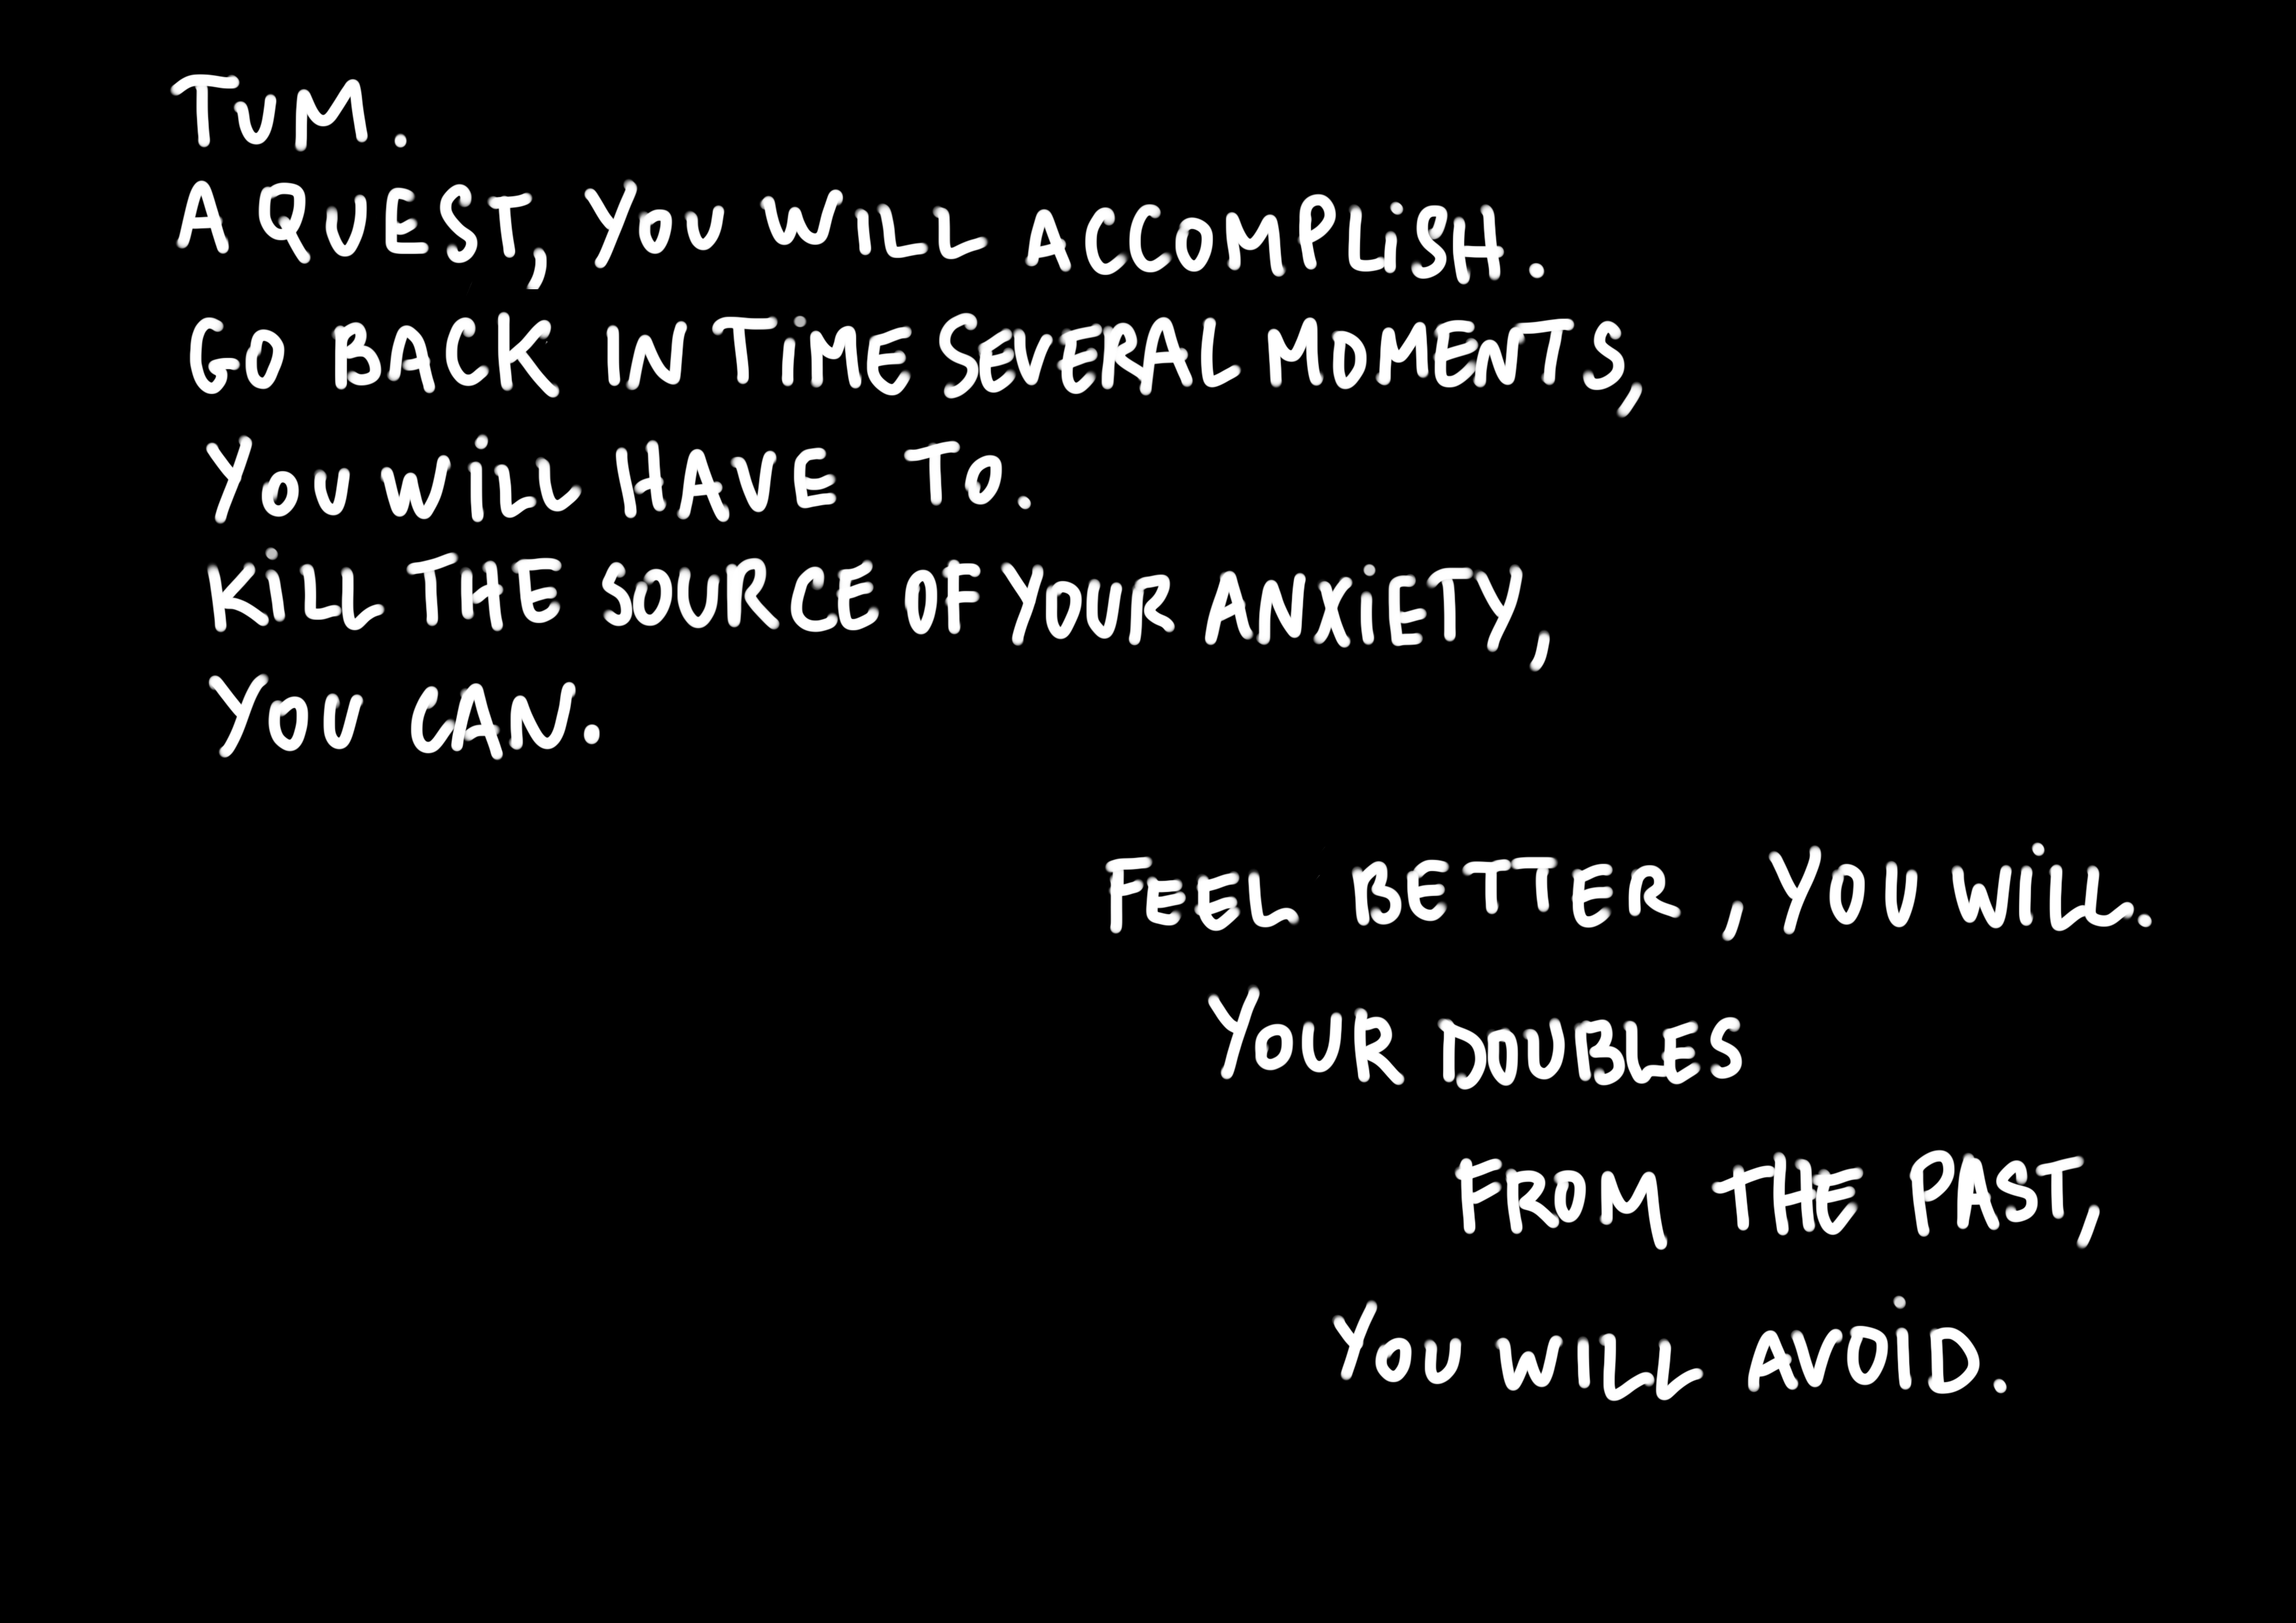 TUM.
A QUEST, YOU WILL ACCOMPLISH.
GO BACK IN TIME SEVERAL MOMENTS,
YOU WILL HAVE TO.
KILL THE SOURCE OF YOUR ANXIETY,
YOU CAN.
FEEL BETTER, YOU WILL.
YOUR DOUBLES
FROM THE PAST,
YOU WILL AVOID.